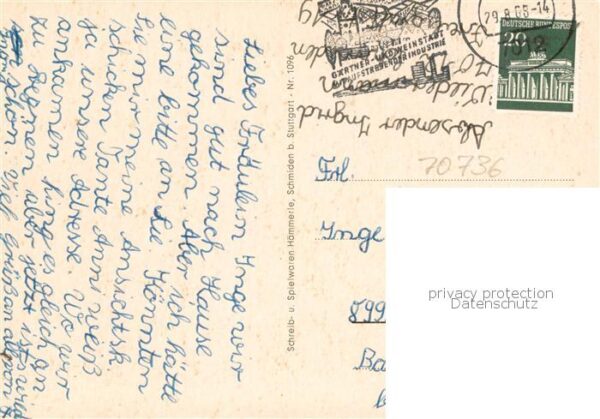 Liebes Fräulein Inge wir
sind gut nach Hause
gekommen. Aber ich hätte
eine bitte an Sie Könnten
Sie mir meine Ansichtsk
schicken Tante Anni weiß
ja unsere Adresse. Wo wir
ankamen fing es gleich an
zu Regnen aber jetzt ist es wied
schön. Viel grüße an alle von
Schreib- u. Spielwaren Hämmerle, Schmiden b. Stuttgart - Nr. 1096
Absender Ingrid
GÄRTNER- UND WEINSTADT
AUFSTREBENDER INDUSTRIE
29.8.65-14
DEUTSCHE BUNDESPOST
20
70736
Frl.
Inge
899
Ba
privacy protection
Datenschutz